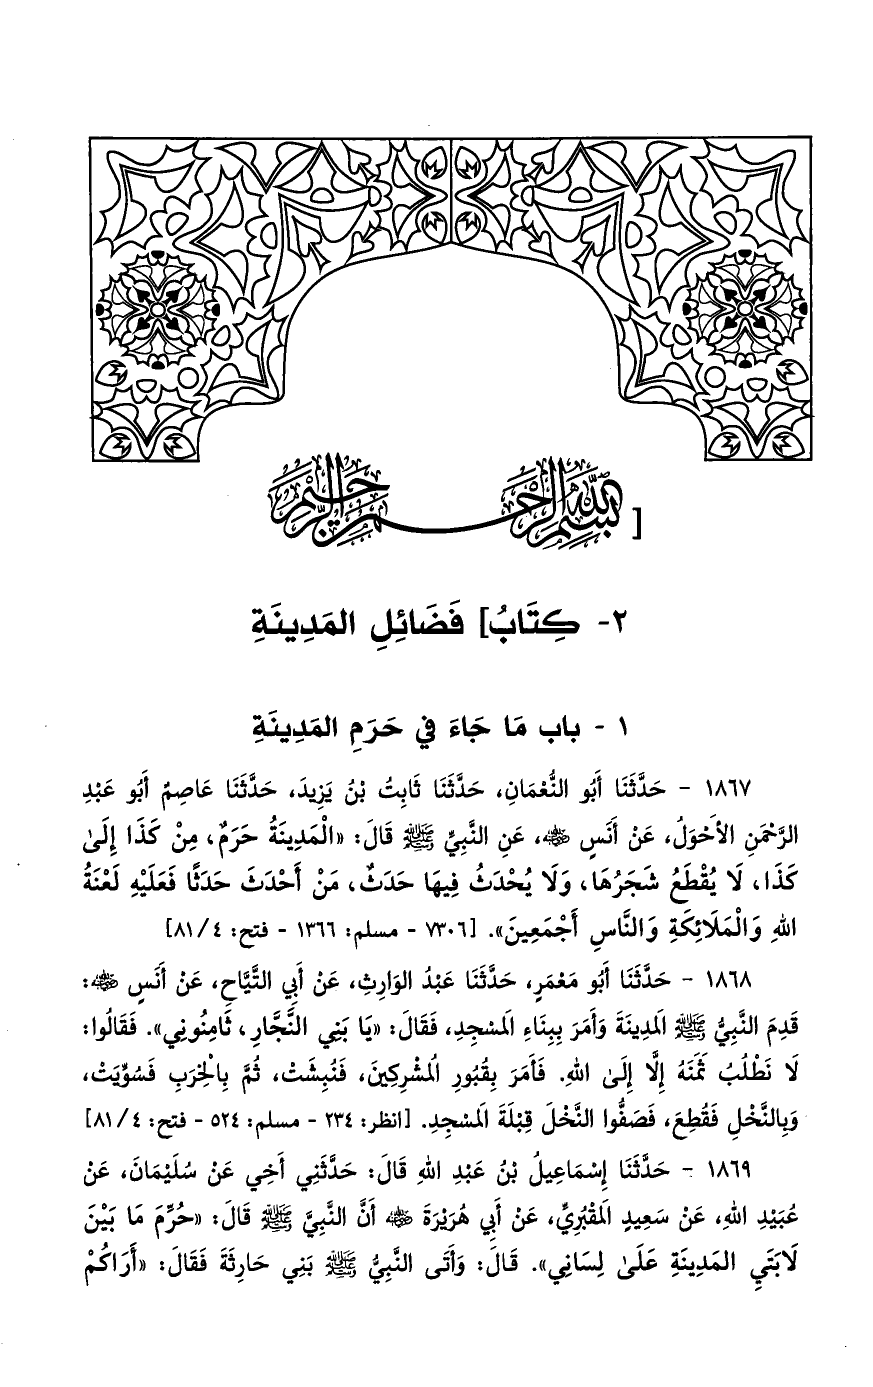 [بسم الله الرحمن الرحيم
٢- كِتَابُ] فَضَائِلِ المَدِينَةِ
١ - باب مَا جَاءَ في حَرَمِ المَدِينَةِ
١٨٦٧ - حَدَّثَنَا أَبُو النُّعْمَانِ، حَدَّثَنَا ثَابِتُ بْنُ يَزِيدَ، حَدَّثَنَا عَاصِمٌ أَبُو عَبْدِ
الرَّحْمَنِ الأَحْوَلُ، عَنْ أَنَسٍ ﵁، عَنِ النَّبِيِّ ﷺ قَالَ: «الْمَدِينَةُ حَرَمٌ، مِنْ كَذَا إِلَىٰ
كَذَا، لَا يُقْطَعُ شَجَرُهَا، وَلَا يُحْدَثُ فِيهَا حَدَثٌ، مَنْ أَحْدَثَ حَدَثًا فَعَلَيْهِ لَعْنَةُ
اللهِ وَالْمَلَائِكَةِ وَالنَّاسِ أَجْمَعِينَ». [٧٣٠٦ - مسلم: ١٣٦٦ - فتح: ٤/ ٨١]
١٨٦٨ - حَدَّثَنَا أَبُو مَعْمَرٍ، حَدَّثَنَا عَبْدُ الوَارِثِ، عَنْ أَبِي التَّيَّاحِ، عَنْ أَنَسٍ ﵁:
قَدِمَ النَّبِيُّ ﷺ المَدِينَةَ وَأَمَرَ بِبِنَاءِ المَسْجِدِ، فَقَالَ: «يَا بَنِي النَّجَّارِ، ثَامِنُونِي». فَقَالُوا:
لَا نَطْلُبُ ثَمَنَهُ إِلَّا إِلَىٰ اللهِ. فَأَمَرَ بِقُبُورِ المُشْرِكِينَ، فَنُبِشَتْ، ثُمَّ بِالْخِرَبِ فَسُوِّيَتْ،
وَبِالنَّخْلِ فَقُطِعَ، فَصَفُّوا النَّخْلَ قِبْلَةَ المَسْجِدِ. [انظر: ٢٣٤ - مسلم: ٥٢٤ - فتح: ٤/ ٨١]
١٨٦٩ - حَدَّثَنَا إِسْمَاعِيلُ بْنُ عَبْدِ اللهِ قَالَ: حَدَّثَنِي أَخِي عَنْ سُلَيْمَانَ، عَنْ
عُبَيْدِ اللهِ، عَنْ سَعِيدٍ المَقْبُرِيِّ، عَنْ أَبِي هُرَيْرَةَ ﵁ أَنَّ النَّبِيَّ ﷺ قَالَ: «حُرِّمَ مَا بَيْنَ
لَابَتَيِ المَدِينَةِ عَلَىٰ لِسَانِي». قَالَ: وَأَتَى النَّبِيُّ ﷺ بَنِي حَارِثَةَ فَقَالَ: «أَرَاكُمْ